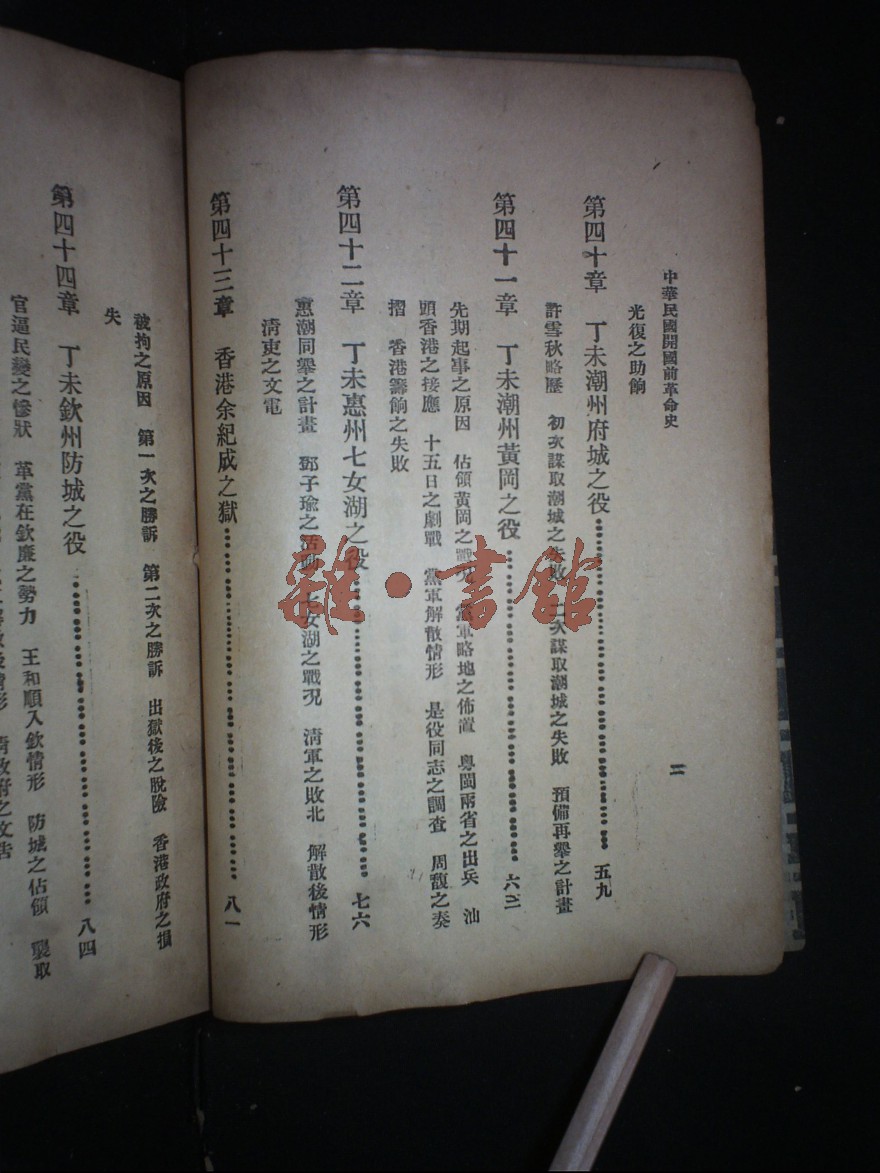 中華民國開國前革命史
二
光復之助餉
第四十章 丁未潮州府城之役 五九
許雪秋略歷 初次謀取潮城之失敗 二次謀取潮城之失敗 預備再舉之計畫
第四十一章 丁未潮州黃岡之役 六三
先期起事之原因 佔領黃岡之戰況 黨軍略地之佈置 粵閩兩省之出兵 汕
頭香港之接應 十五日之劇戰 黨軍解散情形 是役同志之調查 周馥之奏
摺 香港籌餉之失敗
第四十二章 丁未惠州七女湖之役 七六
惠潮同舉之計畫 鄧子瑜之活動 七女湖之戰況 清軍之敗北 解散後情形
清吏之文電
第四十三章 香港余紀成之獄 八一
被拘之原因 第一次之勝訴 第二次之勝訴 出獄後之脫險 香港政府之損
失
第四十四章 丁未欽州防城之役 八四
官逼民變之慘狀 革黨在欽廉之勢力 王和順入欽情形 防城之佔領 襲取
情形 清政府之文告
雜·書館